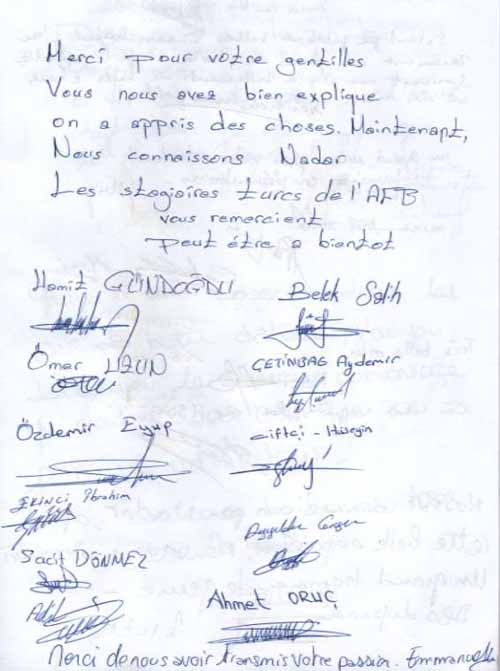 Merci pour votre gentilles
Vous nous avez bien explique
on a appris des choses. Maintenapt,
Nous connaissons Nadar
Les stagioires turcs de l'AFB
vous remercient
Peut étre a biantot
Hamit GÜNDOGDU
Belek Salih
Ömer UZUN
ÇETİNBAG Aydemir
Özdemir Eyup
Ciftçi - Hüseyin
EKİNCİ İbrahim
Sacit DÖNMEZ
Ahmet ORUÇ
Merci de nous avoir transmis votre passion. Emmanuelle